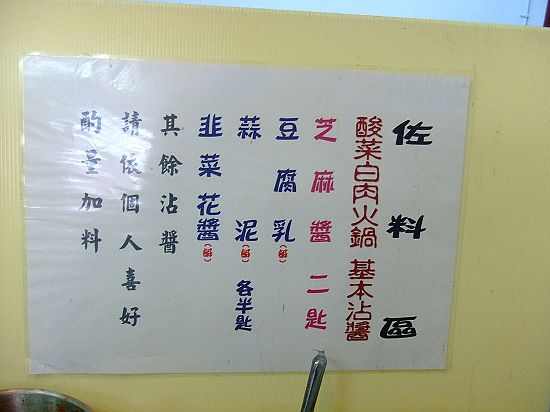 佐料區
酸菜白肉火鍋 基本沾醬
芝麻醬二匙
豆腐乳
蒜泥 各半匙
韭菜花醬
其餘沾醬
請依個人喜好
酌量加料